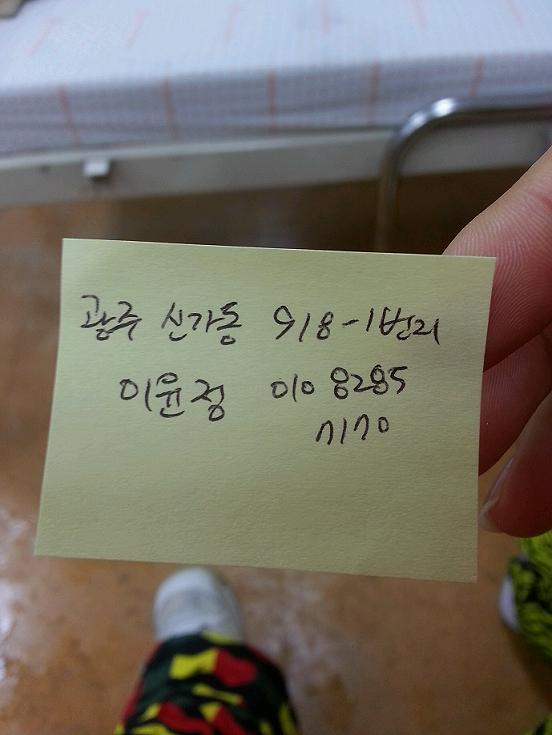 광주 신가동 918-1번지
이윤정 010 8285
7170